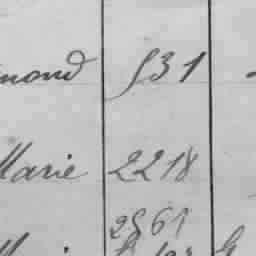 mond 531
Marie 2218
2561